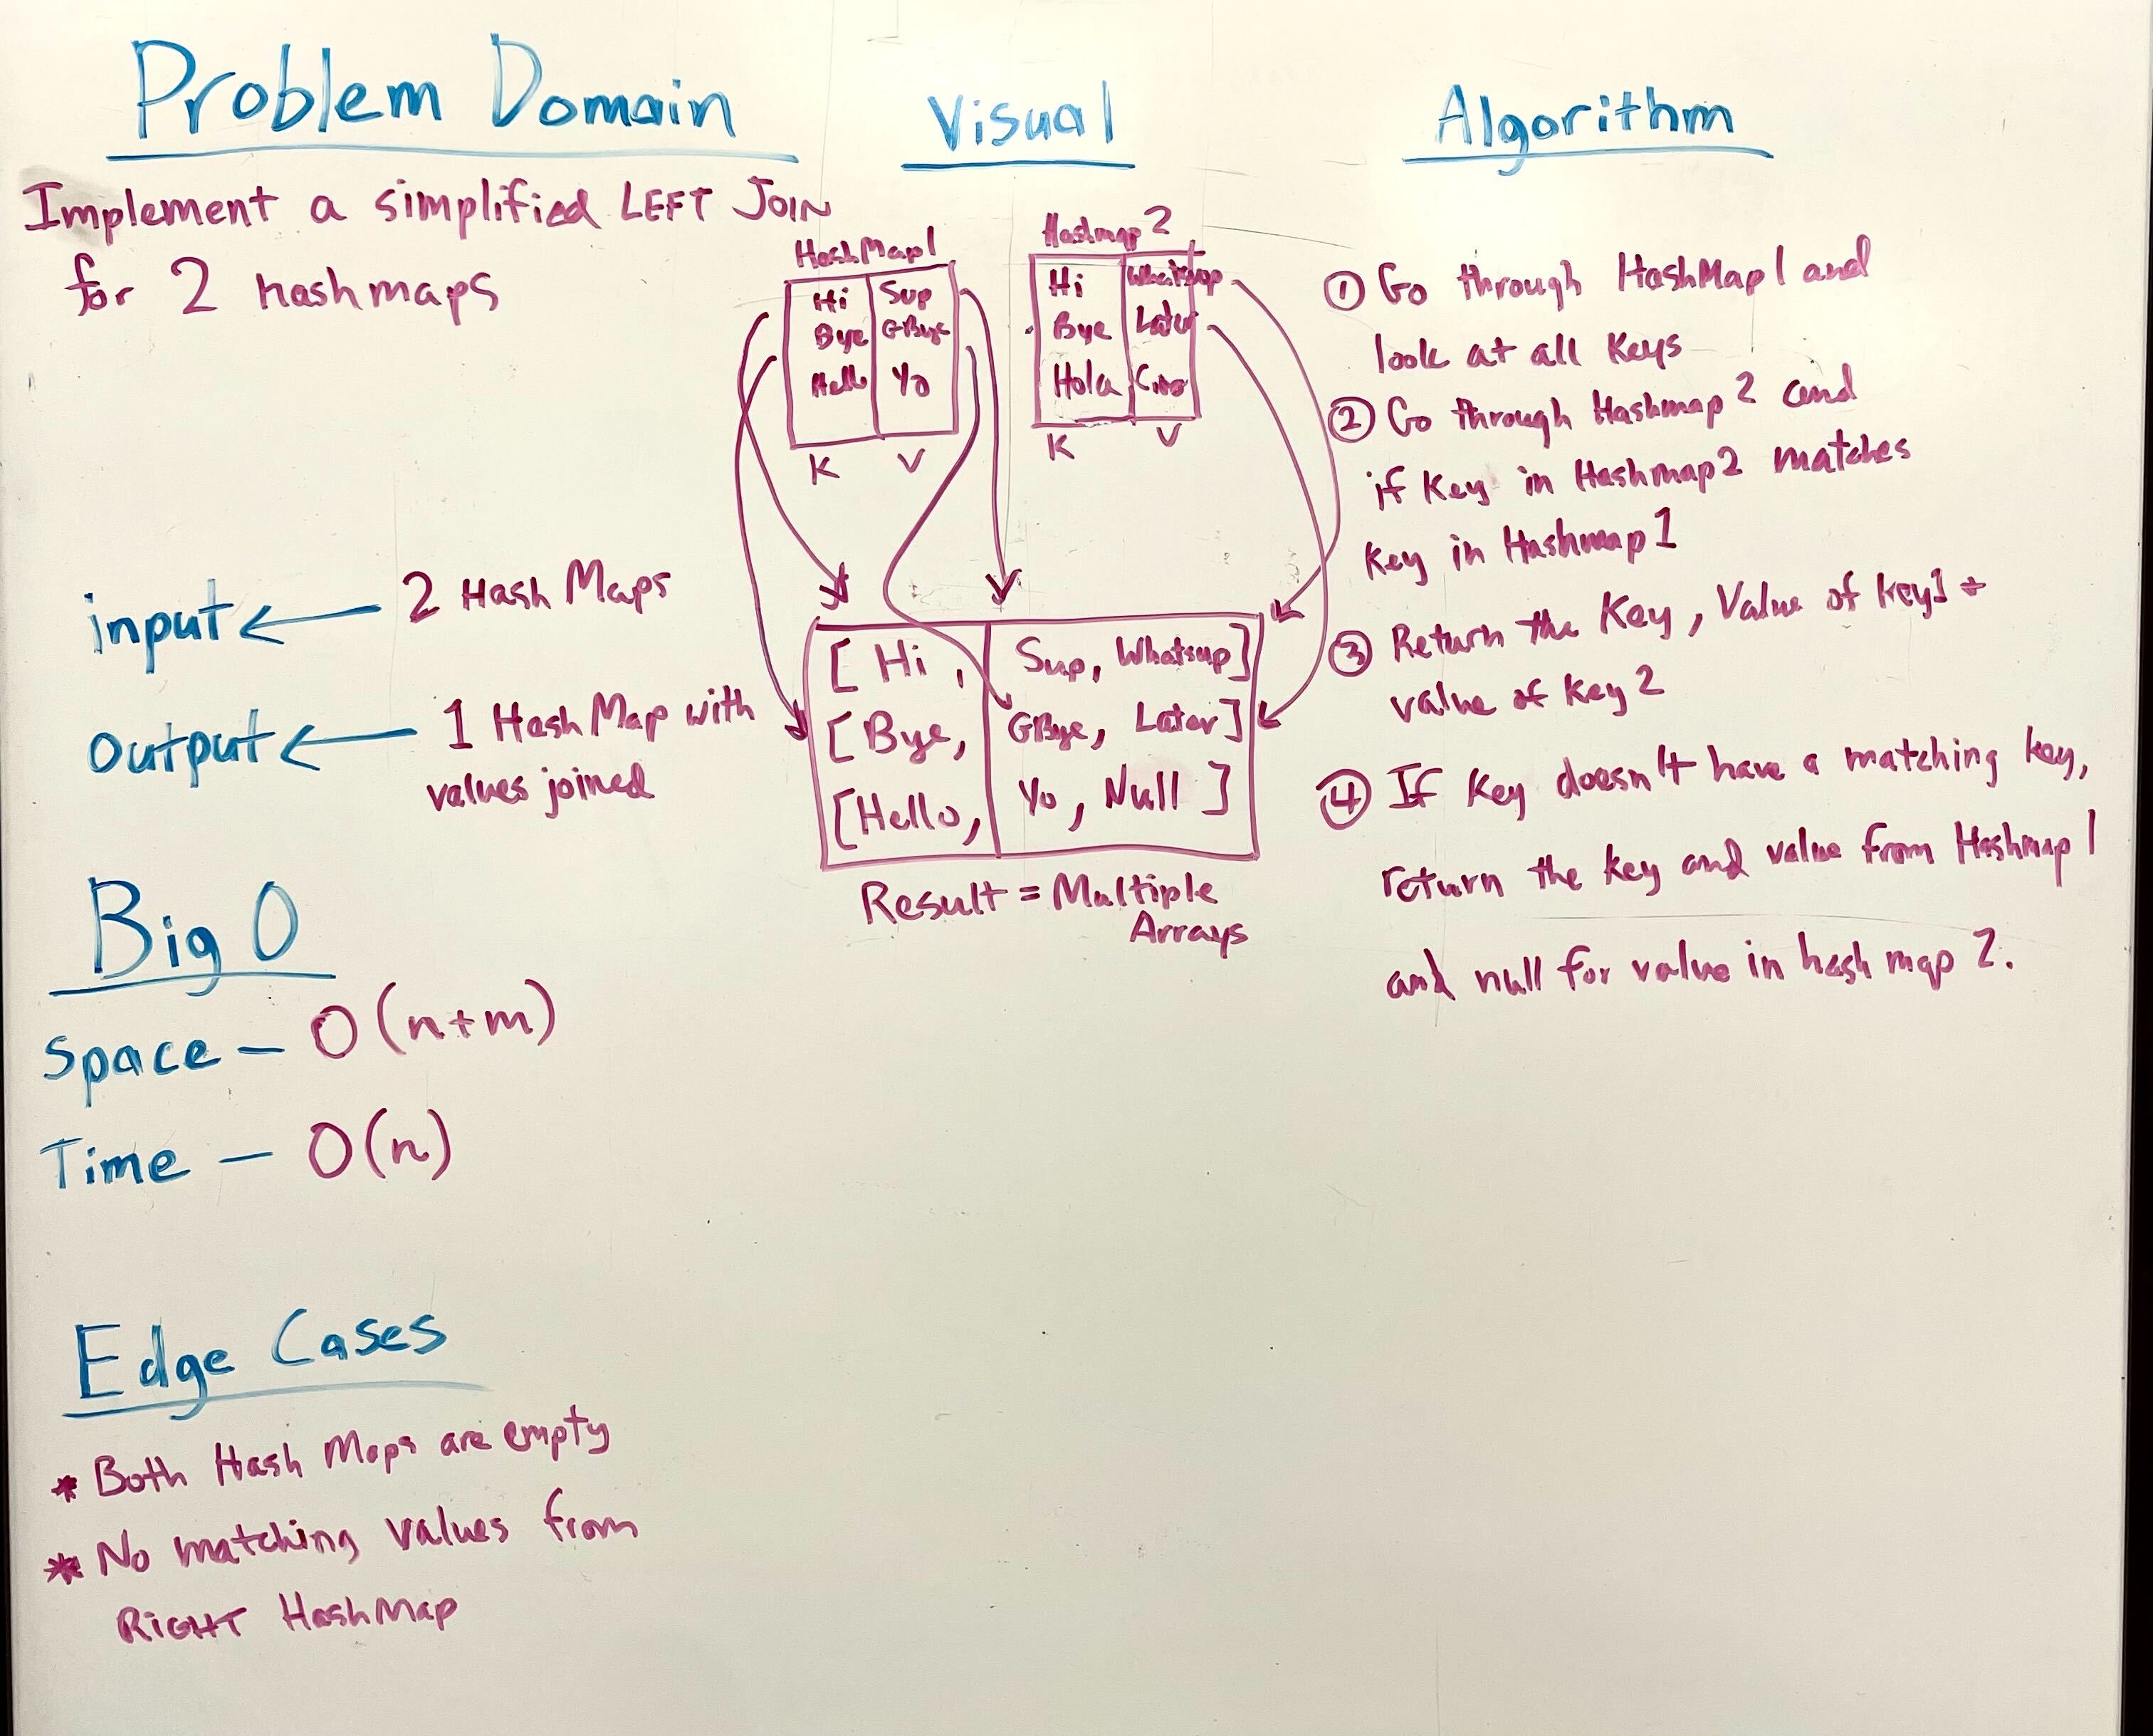 Problem Domain
Implement a simplified LEFT JOIN
for 2 hashmaps
input ← 2 Hash Maps
output ← 1 HashMap with
values joined
Big O
Space — O(n+m)
Time — O(n)
Edge Cases
* Both Hash Maps are empty
* No matching values from
RIGHT HashMap
Visual
HashMap1
Hi Sup
Bye GBye
Hello Yo
K V
Hashmap 2
Hi Whatsup
Bye Later
Hola
K V
[ Hi , Sup, Whatsup]
[ Bye, GBye, Later]
[Hello, Yo, Null ]
Result = Multiple
Arrays
Algorithm
① Go through HashMap1 and
look at all Keys
② Go through Hashmap 2 and
if Key in Hashmap2 matches
Key in Hashmap1
③ Return the Key, Value of key1 +
value of Key 2
④ If Key doesn't have a matching key,
return the key and value from Hashmap1
and null for value in hash map 2.